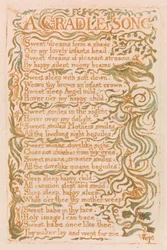 A CRADLE SONG
Sweet dreams form a shade
O'er my lovely infants head.
Sweet dreams of pleasant streams
By happy silent moony beams
Sweet sleep with soft down
Weave thy brows an infant crown.
Sweet sleep Angel mild,
Hover o'er my happy child.
Sweet smiles in the night
Hover over my delight.
Sweet smiles Mothers smiles
All the livelong night beguiles.
Sweet moans, dovelike sighs
Chase not slumber from thy eyes
Sweet moans, sweeter smiles
All the dovelike moans beguiles
Sleep sleep happy child
All creation slept and smil'd
Sleep sleep, happy sleep
While o'er thee thy mother weep
Sweet babe in thy face
Holy image I can trace
Sweet babe once like thee
Thy maker lay and wept for me